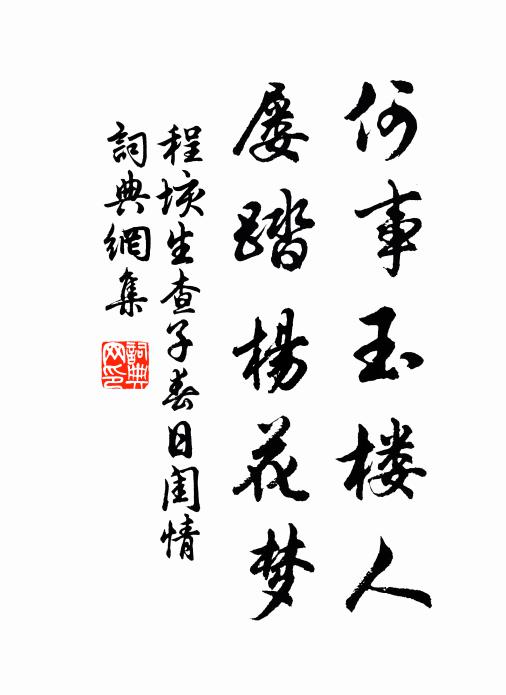 何事玉楼人
屡踏楊花梦
程垓生查子春日闺情
詞典網集
詞典网印